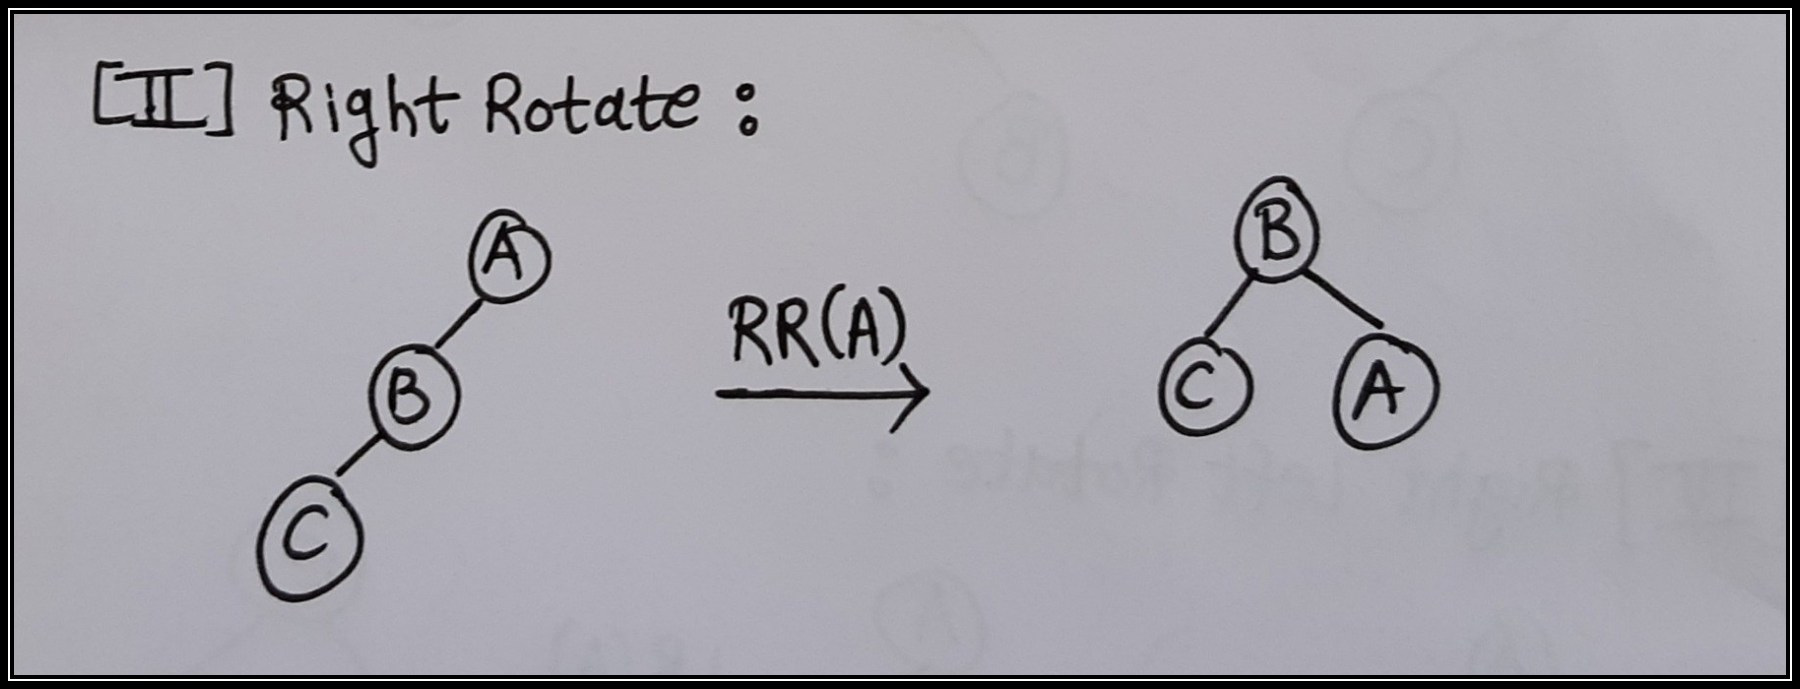 [II] Right Rotate :
A
B
C
RR(A)
B
C
A